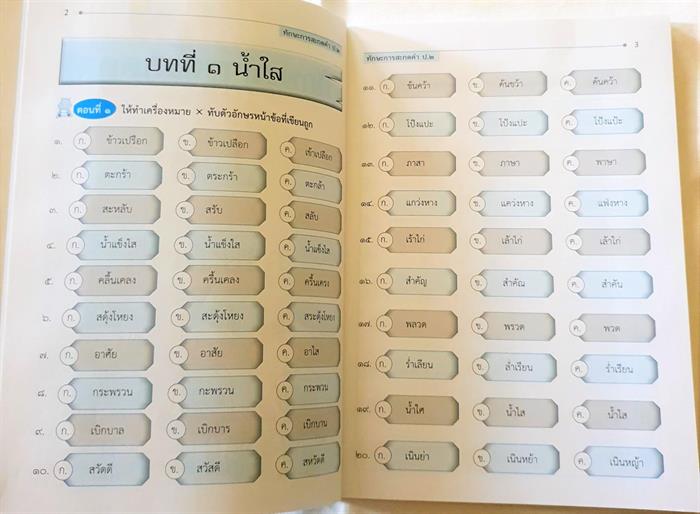 2
ทักษะการสะกดคำ ป.๒
บทที่ ๑ น้ำใส
ตอนที่ ๑ ให้ทำเครื่องหมาย × ทับตัวอักษรหน้าข้อที่เขียนถูก
๑. ก. ข้าวเปรือก ข. ข้าวเปลือก ค. เข้าเปลือก
๒. ก. ตะกร้า ข. ตระกร้า ค. ตะกล้า
๓. ก. สะหลับ ข. สรับ ค. สลับ
๔. ก. น้ำแข็งไส ข. น้ำแข็งใส ค. น้ำแข็งใส
๕. ก. คลื้นเคลง ข. ครื้นเคลง ค. ครื้นเครง
๖. ก. สดุ้งโหยง ข. สะดุ้งโหยง ค. สระดุ้งโหยง
๗. ก. อาศัย ข. อาสัย ค. อาไส
๘. ก. กระพรวน ข. กะพรวน ค. กระพวน
๙. ก. เบิกบาล ข. เบิกบาร ค. เบิกบาน
๑๐. ก. สวัดดี ข. สวัสดี ค. สหวัดดี
ทักษะการสะกดคำ ป.๒
3
๑๑. ก. ขันคว้า ข. ค้นขว้า ค. ค้นคว้า
๑๒. ก. โป้งแปะ ข. โป้งแปะ ค. โป้งแป้ะ
๑๓. ก. ภาสา ข. ภาษา ค. พาษา
๑๔. ก. แกว่งหาง ข. แคว่งหาง ค. แฟ่งหาง
๑๕. ก. เร้าไก่ ข. เล้าไก่ ค. เล้าไก่
๑๖. ก. สำคัญ ข. สำคัณ ค. สำคัน
๑๗. ก. พลวด ข. พรวด ค. พวด
๑๘. ก. ร่ำเลียน ข. ล่ำเรียน ค. ร่ำเรียน
๑๙. ก. น้ำใศ ข. น้ำใส ค. น้ำไส
๒๐. ก. เนินย่า ข. เนินหย้า ค. เนินหญ้า